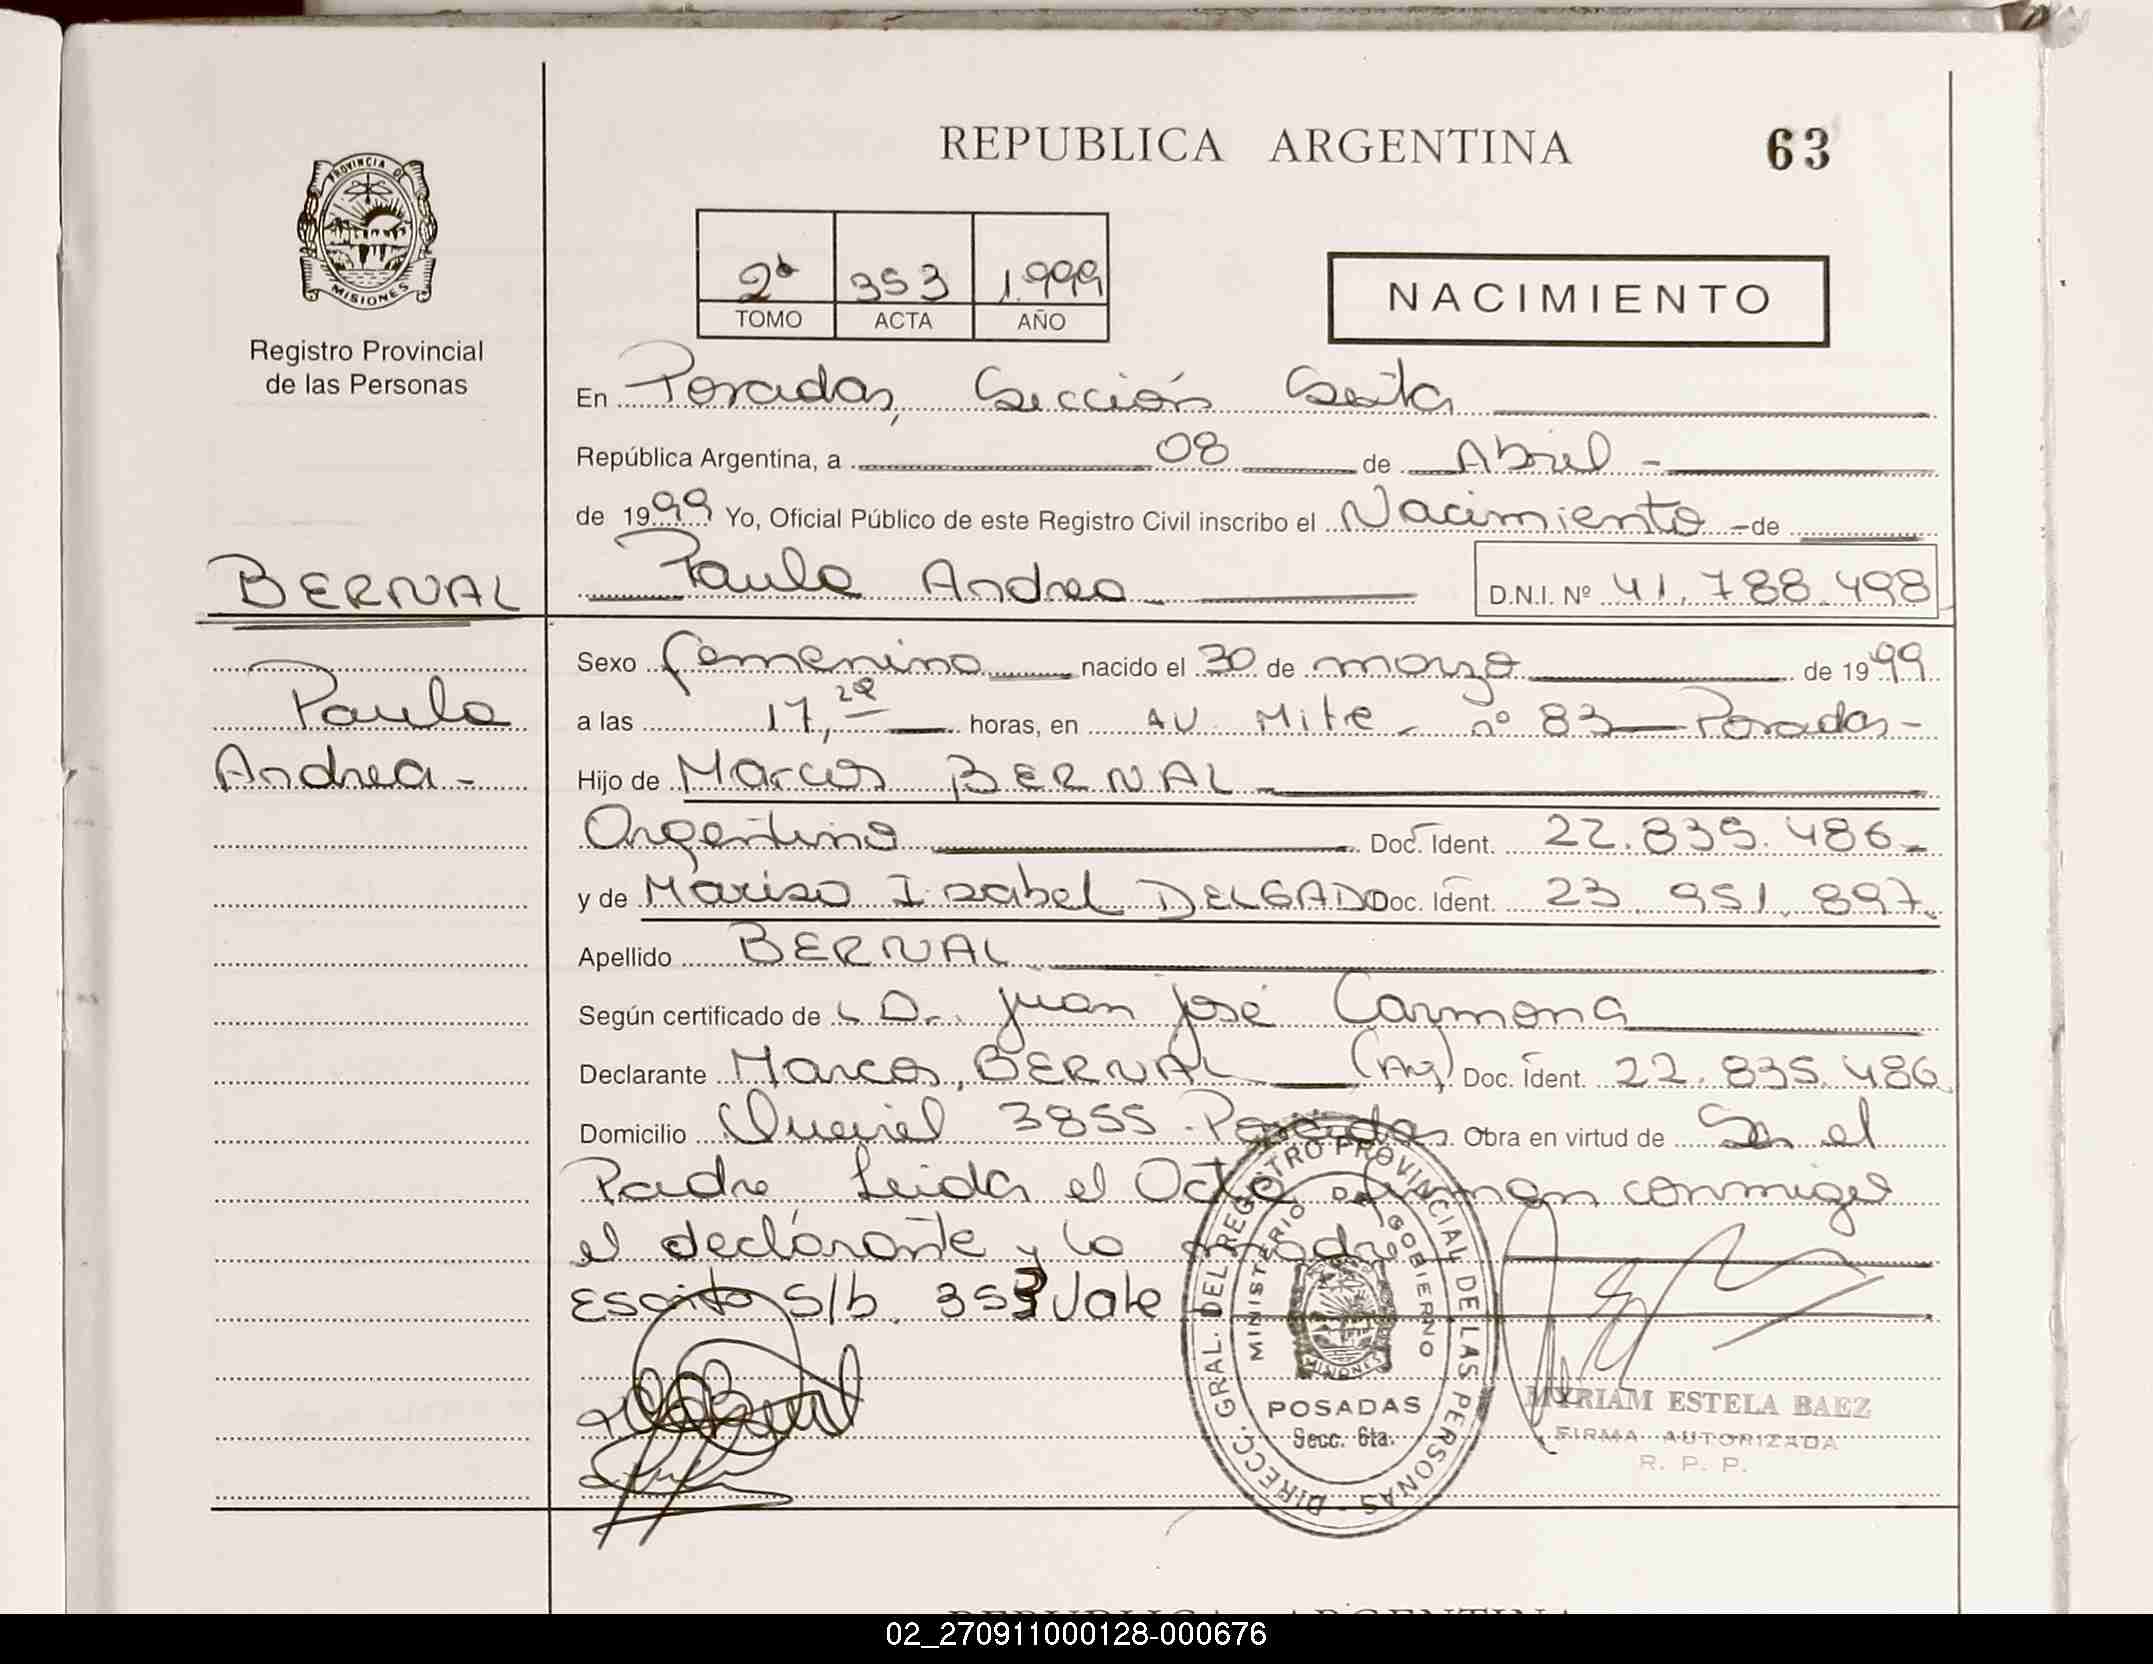 REPUBLICA ARGENTINA
63
PROVINCIA DE
MISIONES
Registro Provincial
de las Personas
2º 353 1.999
TOMO ACTA AÑO
NACIMIENTO
En Posadas, Sección Sexta
República Argentina, a 08 de Abril -
de 1999 Yo, Oficial Público de este Registro Civil inscribo el Nacimiento - de
BERNAL
Paula Andrea
D.N.I. Nº 41.788.498
Sexo femenino nacido el 30 de marzo de 1999
Paula
a las 17, horas, en AV. Mitre - nº 83 - Posadas -
Andrea -
Hijo de Marcos BERNAL
Argentino Doc. Ident. 22.835.486 -
y de Marisa Isabel DELGADO Doc. Ident. 23.951.897.
Apellido BERNAL
Según certificado de D. Juan José Carmona
Declarante Marcos, BERNAL (Arg) Doc. Ident. 22.835.486
Domicilio 3855 - Posadas. Obra en virtud de Ser el
Padre Leida el Acta firman conmigo
el declarante y la madre
Escrito S/b. 353 Vale
DIRECC. GRAL. DEL REGISTRO PROVINCIAL DE LAS PERSONAS -
MINISTERIO DE GOBIERNO
MISIONES
POSADAS
Secc. 6ta.
MYRIAM ESTELA BAEZ
FIRMA AUTORIZADA
R. P. P.
REPUBLICA ARGENTINA
02_270911000128-000676